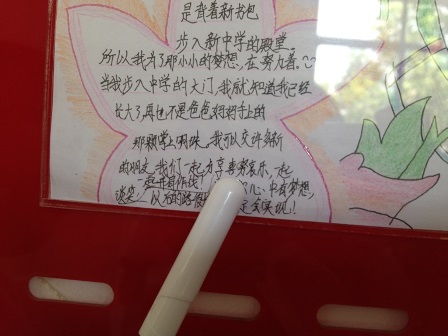 是背着新书包
步入新中学的殿堂。
所以我为了那小小的梦想,在努力着。
当我步入中学的大门,我就知道我已经
长大了再也不是爸爸妈妈手上的
那颗掌上明珠。我可以交许多新
的朋友,我们一起分享喜努哀乐,一起
一起并肩作战! 心中有梦想,
以后的路 定会实现!!